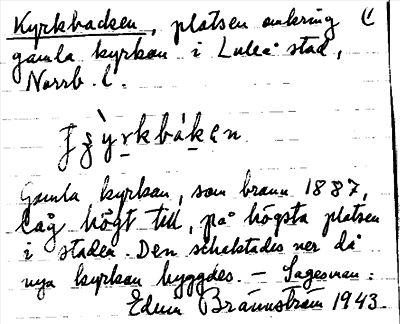 Kyrkbacken, platsen omkring
gamla kyrkan i Luleå stad,
Norrb. l.
gamla kyrkan, som brann 1887,
låg högt till, på högsta platsen
i staden. Den schaktades ner då
nya kyrkan byggdes. — Sagesman:
Edvin Brännström 1943.